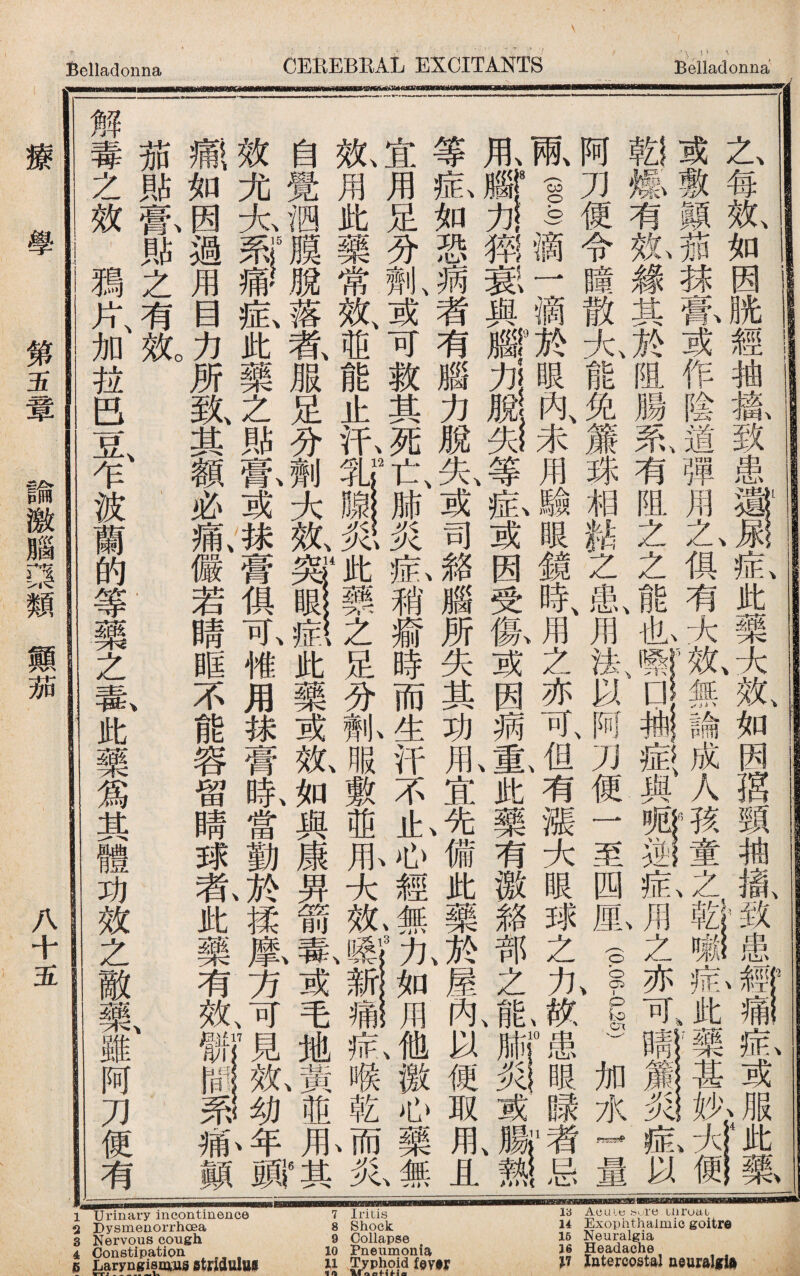 Belladonna
CEREBRAL EXCITANTS
Belladonna
之、每效、如因胱經抽搐、致患遺尿症、此藥大效、如因㝛頸抽搐、致患經痛症、或服此藥、
或敷顚茄抹膏、或作陰道彈用之、俱有大效、無論成人孩童之乾嗽症、此藥甚妙、大便
乾燥、有效、緣其於阻腸系、有阻之之能也、嗓口抽症與呃逆症、用之亦可、睛簾炎症、以
阿刀便令瞳散大、能免簾珠相粘之患、用法、以阿刀便一至四厘、(0.06-0.25) 加水一量
兩、(30.0) 滴一滴於眼內、未用驗眼鏡時、用之亦可、但有漲大眼球之力、故患眼睩者忌
用、腦力猝衰、與腦力脫失等症、或因受傷、或因病重、此藥有激絡部之能、肺炎或腸熱
等症、如恐病者有腦力脫失、或司絡腦所失其功用、宜先備此藥於屋內、以便取用、且
宜用足分劑、或可救其死亡、肺炎症、稍瘉時而生汗不止、心經無力、如用他激心藥無
效、用此藥常效、並能止汗、乳腺炎、此藥之足分劑、服敷並用、大效、嗓新痛症、喉乾而炎、
自覺泗膜脫落者、服足分劑大效、突眼症、此藥或效、如與康畀箭毒、或毛地黃並用、其
效尤大、系痛症、此藥之貼膏、或抹膏俱可、惟用抹膏時、當勤於揉摩、方可見效、幼年頭
痛、如因過用目力所致、其額必痛、儼若睛眶不能容留睛球者、此藥有效、骿間系痛、顚
茄貼膏、貼之有效。
解毒之效 鴉片、加拉巴豆、乍波蘭的等藥之毒、此藥爲其體功效之敵藥、雖阿刀便有
療學 第五章 論激腦藥類 顚茄 八十五
1 Urinary incontinence
2 Dysmenorrhœa
3 Nervous cough
4 Constipation
5 Laryngismus stridulus
7 Iritis
8 Shock
9 Collapse
10 Pneumonia
11 Typhoid fever
12 Mastitis
13 Acute sore throat
14 Exophthalmic goitre
15 Neuralgia
16 Headache
17 Intercostal neuralgia